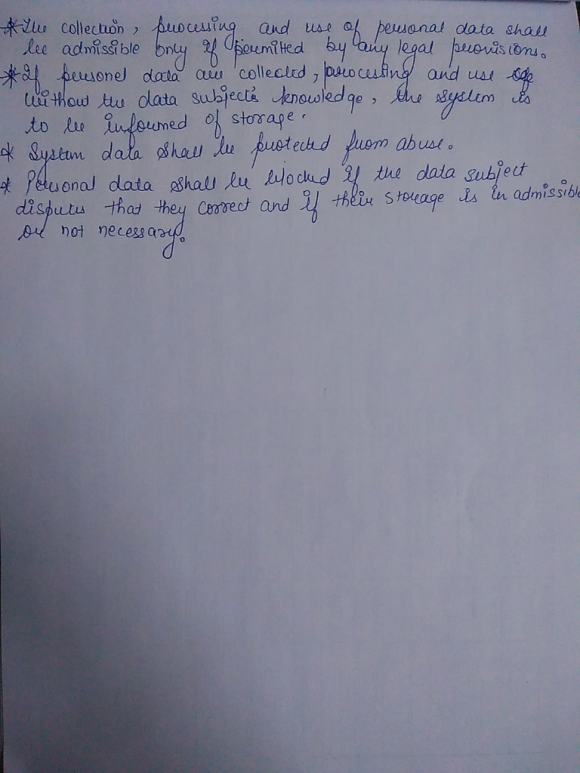 * The collection, processing and use of personal data shall
be admissible only if permitted by any legal provisions.
* If personel data are collected, processing and use
without the data subject's knowledge, the system is
to be informed of storage.
* System data shall be protected from abuse.
* Personal data shall be blocked if the data subject
disputes that they correct and if their storage is in admissible
or not necessary.